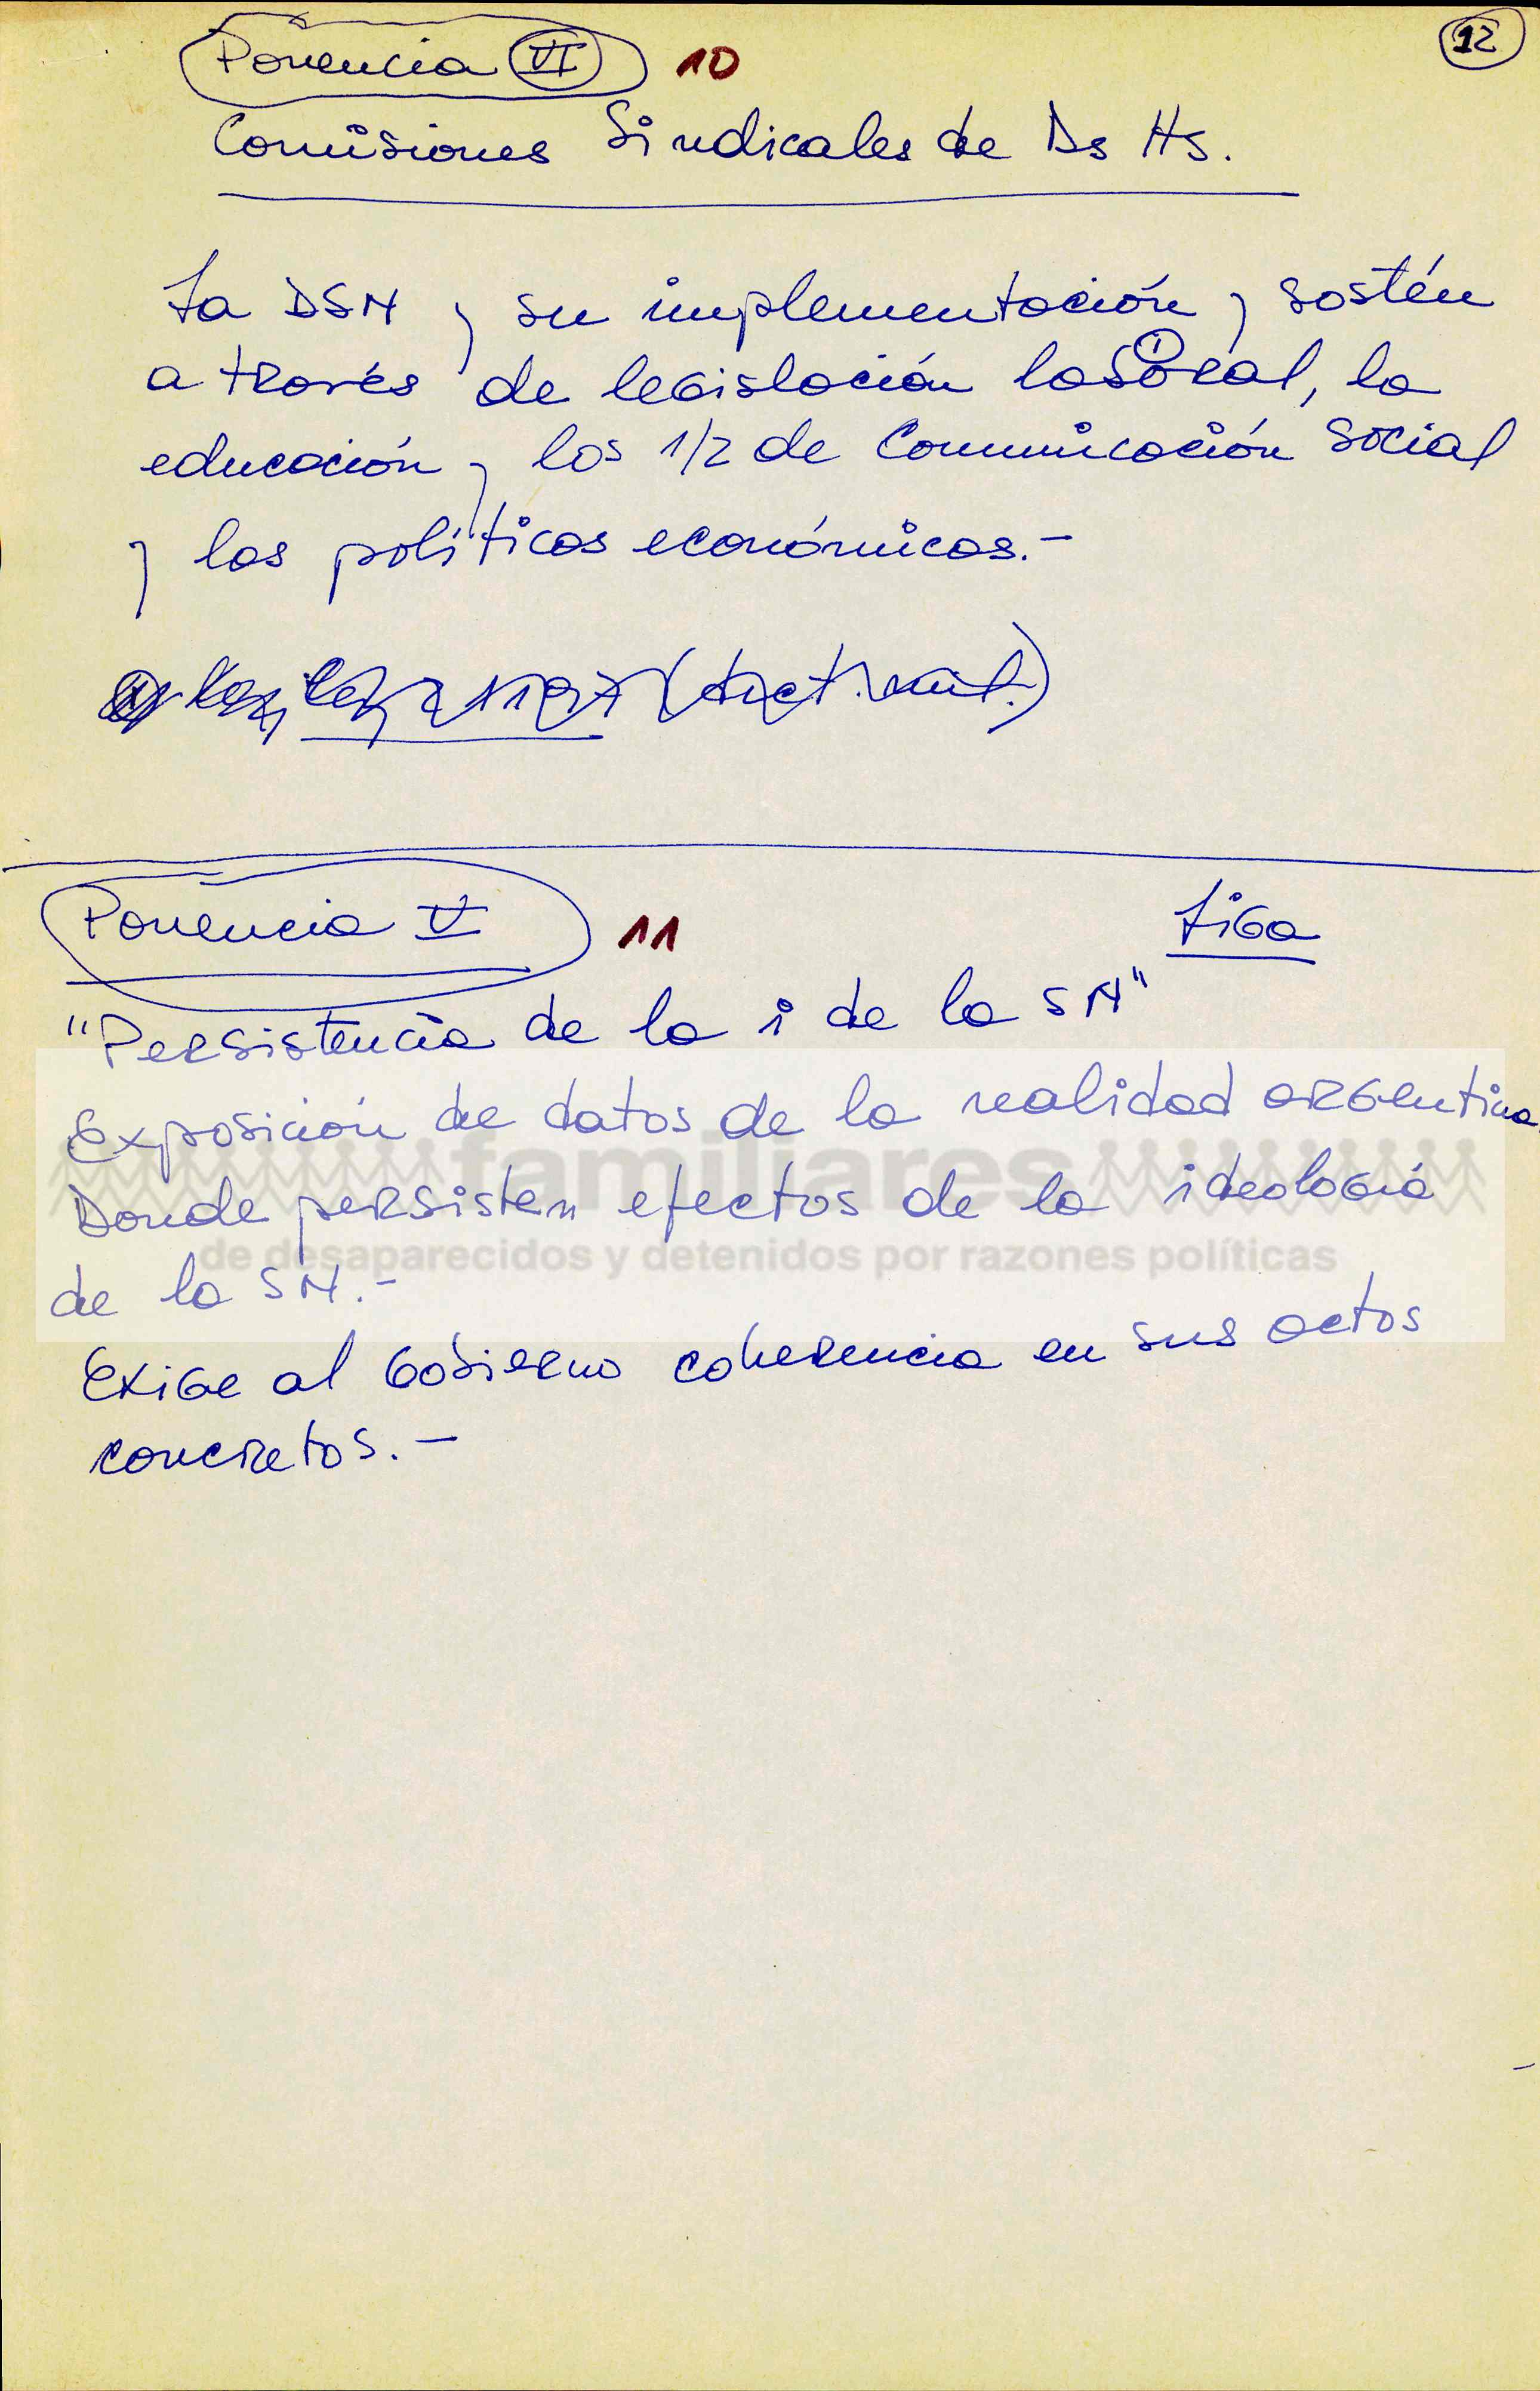 12
Ponencia VI 10
Comisiones Sindicales de Ds Hs.
La DSN y su implementación y sostén
a través de legislación laboral, la
①
educación y los 1/2 de Comunicación Social
y las políticas económicas.-
Ponencia V 11 Liga
"Persistencia de la i de la SN"
Exposición de datos de la realidad argentina.
Donde persisten efectos de la ideología
de la SN.-
Exige al Gobierno coherencia en sus actos
concretos.-
familiares
de desaparecidos y detenidos por razones políticas